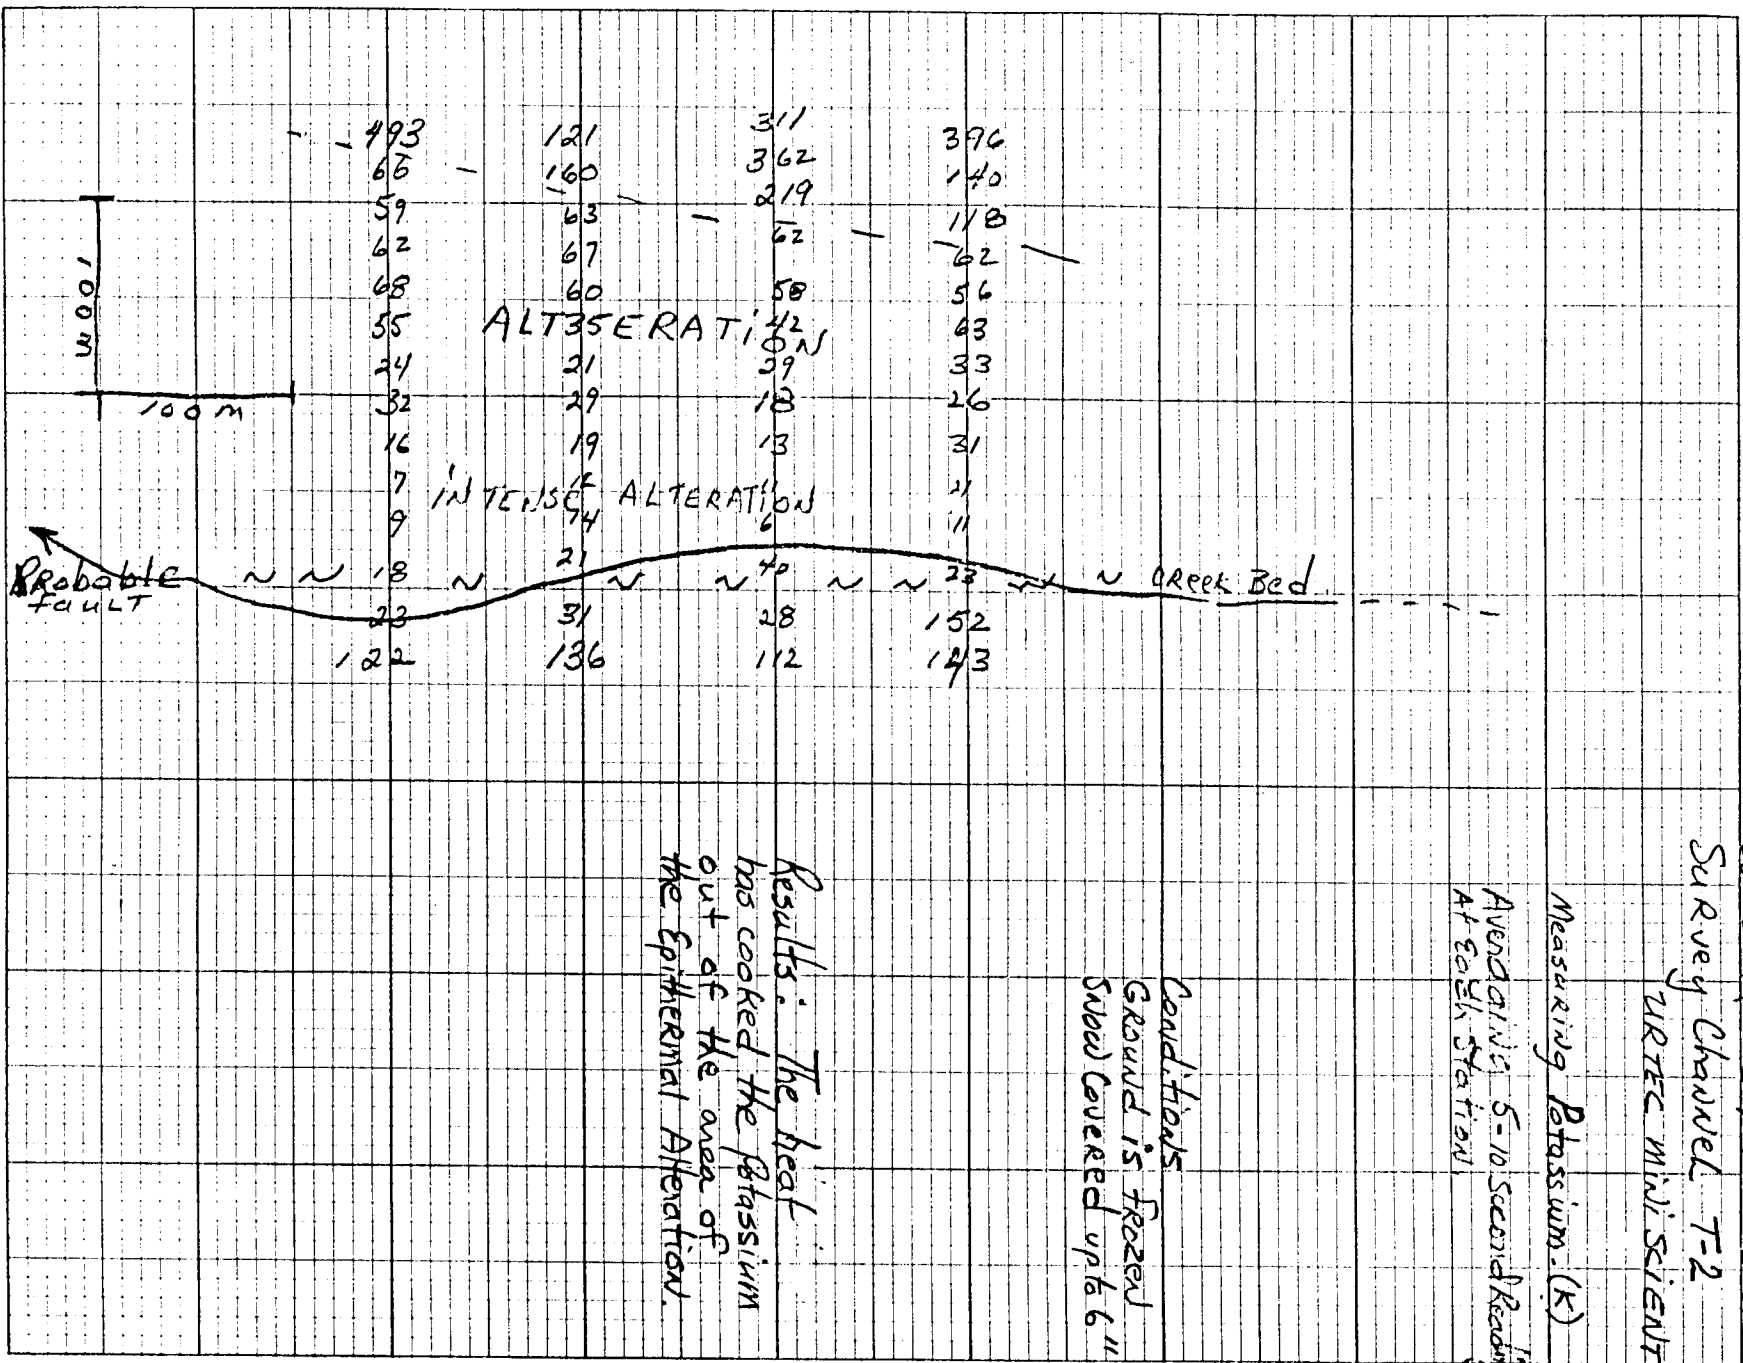 493 121 311 396
66 160 362 140
59 63 219 118
62 67 62 62
68 60 58 56
55 35 42 63
ALTERATION
24 21 29 33
32 29 18 26
16 19 13 31
7 12 11 21
INTENSE ALTERATION
9 14 6 11
18 21 40 23
23 31 28 152
122 136 112 143
100 m
100 m
Probable
fault
Creek Bed
Survey Channel T-2
URTEC MINI SCIENT
Measuring Potassium. (K)
Averaging 5-10 Second
At Each Station
Conditions
Ground is frozen
Snow Covered up to 6"
Results: The heat
has cooked the Potassium
out of the area of
the Epithermal Alteration.